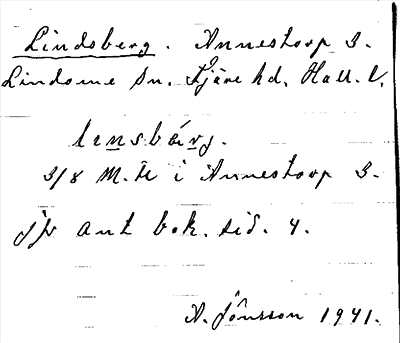 Lindsberg. Annestorp 3.
Lindome sn. Fjäre hd. Hall. l.
lɩnsbärj.
3/8 m. tl i Annestorp 3.
jfr ant bok. sid. 4.
A. Jönsson 1941.